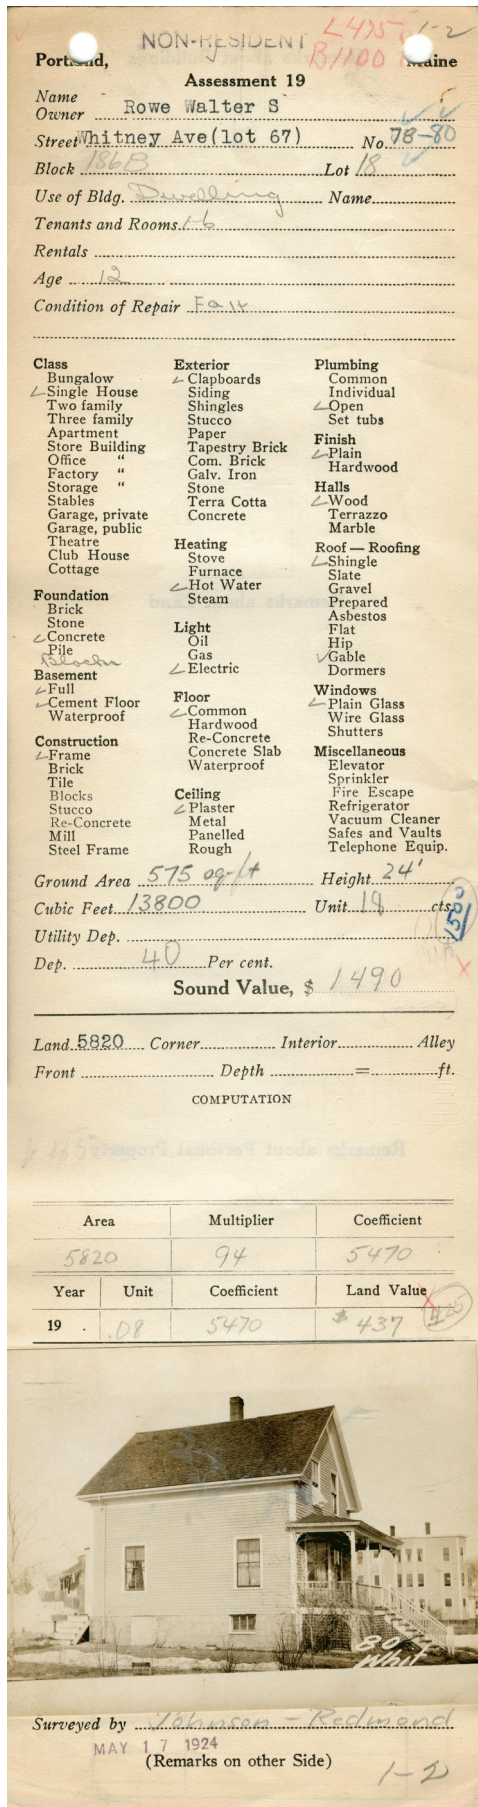 L475 1-2
NON-RESIDENT
B1100
Portland, Maine
Assessment 19
Name
Owner Rowe Walter S
Street Whitney Ave(lot 67) No. 78-80
Block 186B Lot 18
Use of Bldg. Dwelling Name
Tenants and Rooms 1-6
Rentals
Age 12
Condition of Repair Fair
Class
Bungalow
Single House
Two family
Three family
Apartment
Store Building
Office "
Factory "
Storage "
Stables
Garage, private
Garage, public
Theatre
Club House
Cottage
Foundation
Brick
Stone
Concrete
Pile
Blocks
Basement
Full
Cement Floor
Waterproof
Construction
Frame
Brick
Tile
Blocks
Stucco
Re-Concrete
Mill
Steel Frame
Exterior
Clapboards
Siding
Shingles
Stucco
Paper
Tapestry Brick
Com. Brick
Galv. Iron
Stone
Terra Cotta
Concrete
Heating
Stove
Furnace
Hot Water
Steam
Light
Oil
Gas
Electric
Floor
Common
Hardwood
Re-Concrete
Concrete Slab
Waterproof
Ceiling
Plaster
Metal
Panelled
Rough
Plumbing
Common
Individual
Open
Set tubs
Finish
Plain
Hardwood
Halls
Wood
Terrazzo
Marble
Roof — Roofing
Shingle
Slate
Gravel
Prepared
Asbestos
Flat
Hip
Gable
Dormers
Windows
Plain Glass
Wire Glass
Shutters
Miscellaneous
Elevator
Sprinkler
Fire Escape
Refrigerator
Vacuum Cleaner
Safes and Vaults
Telephone Equip.
Ground Area 575 sq-ft Height 24'
Cubic Feet 13800 Unit 18 cts.
1500
Utility Dep.
Dep. 40 Per cent.
Sound Value, $ 1490
Land 5820 Corner Interior Alley
Front Depth = ft.
COMPUTATION
Area Multiplier Coefficient
5820 94 5470
Year Unit Coefficient Land Value
19 .08 5470 $437
80
Whit
Surveyed by Johnson - Redmond
MAY 17 1924
(Remarks on other Side)
1-2